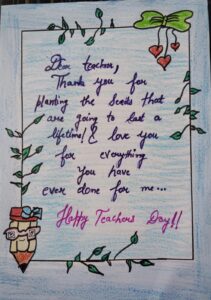 Dear teacher,
Thank you for
planting the Seeds that
are going to last a
lifetime! I love you
for everything
You have
ever done for me...
Happy Teachers Day!!